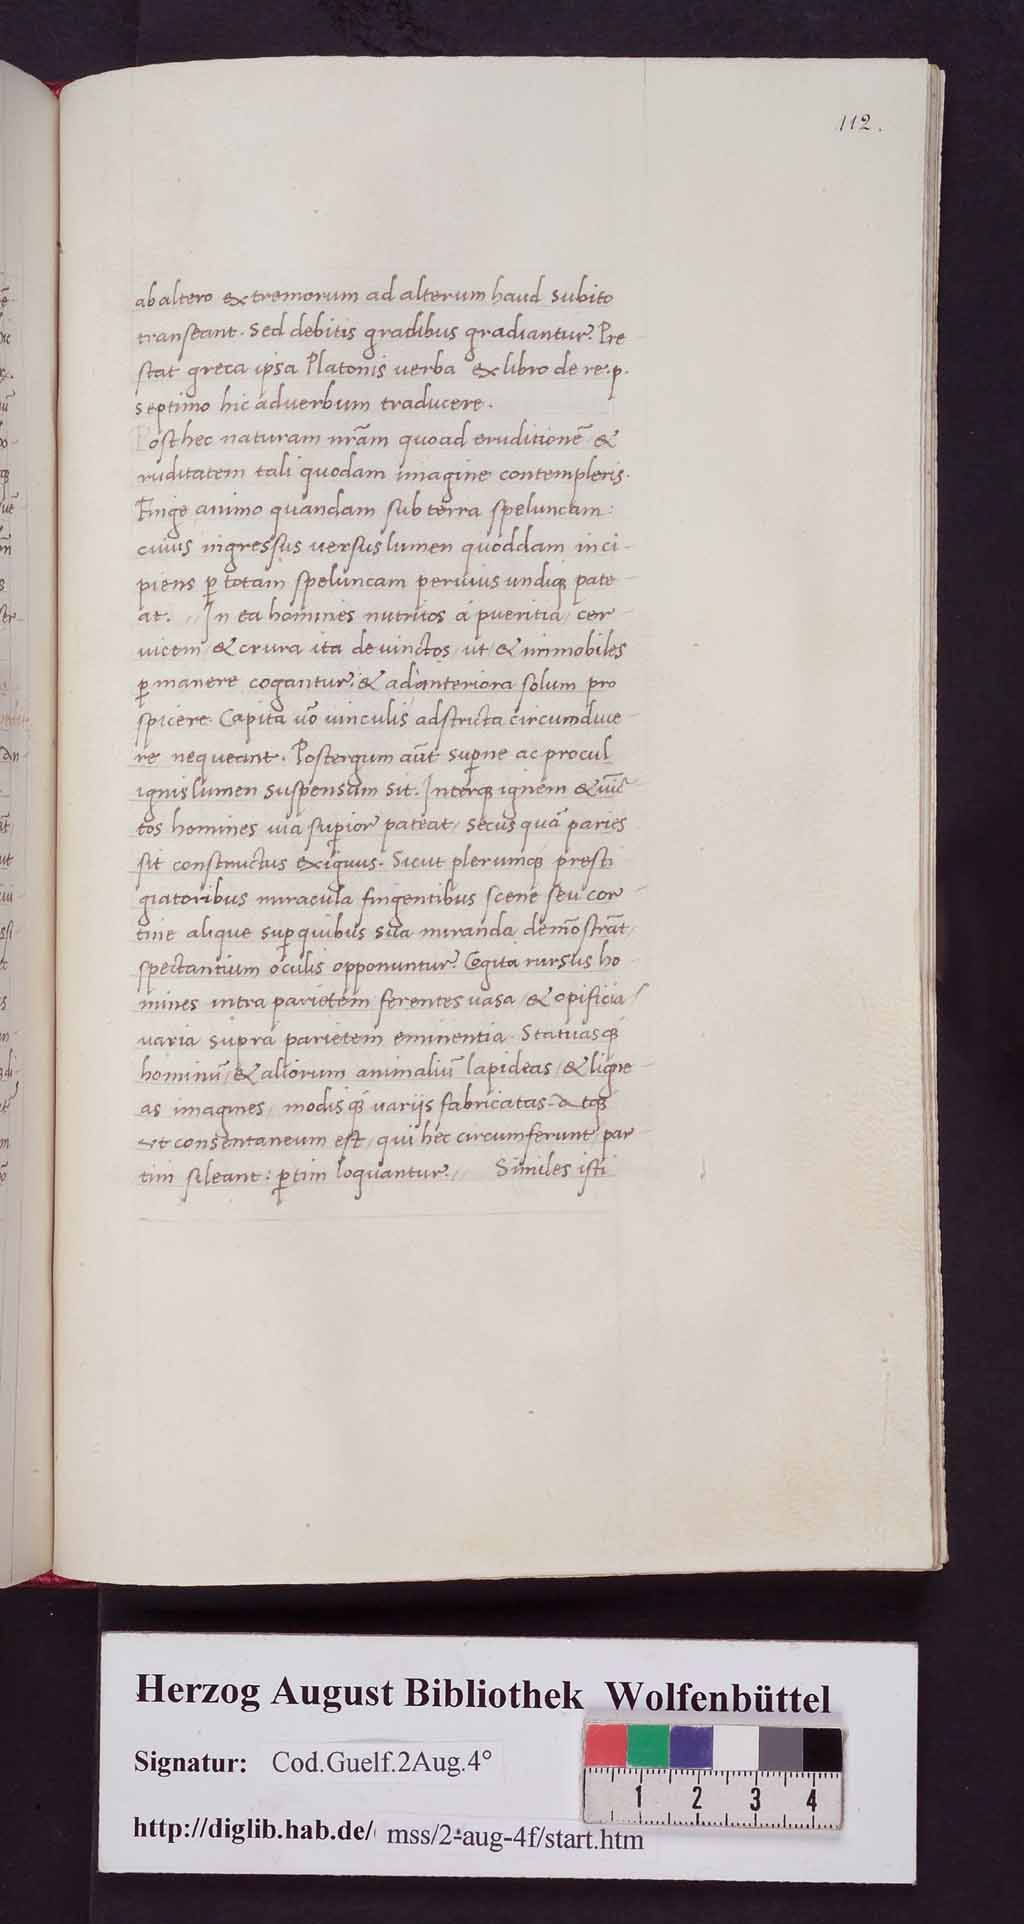 112.
ab altero extremorum ad alterum haud subito
transeant. Sed debitis gradibus gradiantur? Pre
stat greca ipsa Platonis verba ex libro de re. p.
septimo hic ad verbum traducere.
Post hec naturam nr̄am quoad eruditionē &
ruditatem tali quodam imagine contempleris.
Finge animo quandam sub terra speluncam:
cuius ingressus versus lumen quoddam inci-
piens ꝑ totam speluncam pervius undiqꝫ pate-
at. // In ea homines nutritos a pueritia / cer-
uicem / & crura ita devinctos / ut / & immobiles
ꝑmanere cogantur: & ad anteriora solum pro
spicere. Capita uō vinculis adstricta circumduce-
re nequeant. Post ergum aūt suꝑne ac procul
ignis lumen suspensum sit. Interqꝫ ignem & vīc-
tos homines via suꝑior pateat / secus quā paries
sit constructus exiguus. Sicut plerumqꝫ presti
giatoribus miracula fingentibus scene seu cor-
tine alique suꝑ quibus sua miranda demōstrāt /
spectantium oculis opponuntur? Cogita rursus ho-
mines intra parietem ferentes vasa / & opificia /
varia supra parietem eminentia. Statuasqꝫ
hominū / & aliorum animaliū lapideas / & ligne-
as imagines / modisqꝫ varijs fabricatas. atqꝫ
ut consentaneum est / qui hec circumferunt / par-
tim sileant: ꝑtim loquantur? // Similes isti
Herzog August Bibliothek Wolfenbüttel
Signatur: Cod.Guelf.2Aug.4°
http://diglib.hab.de/ mss/2-aug-4f/start.htm
1 2 3 4